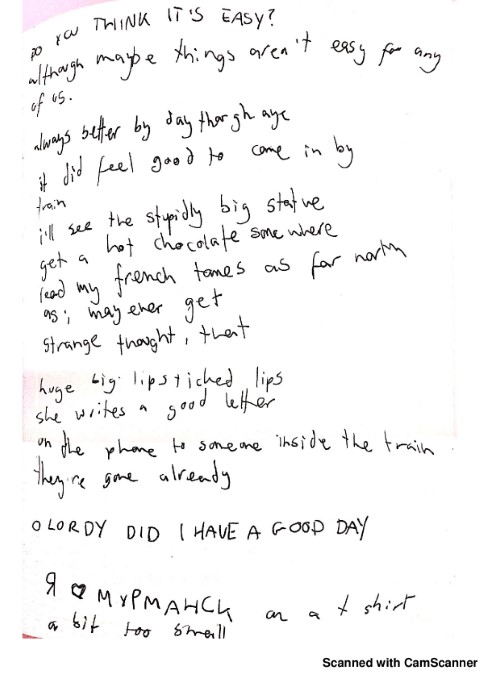 DO YOU THINK IT'S EASY?
although maybe things aren't easy for any
of us.
always better by day though aye
it did feel good to come in by
train
i'll see the stupidly big statue
get a hot chocolate somewhere
read my french tomes as far north
as i may ever get
strange thought, that
huge big lipsticked lips
she writes a good letter
on the phone to someone inside the train
they're gone already
O LORDY DID I HAVE A GOOD DAY
Я ♡ МУРМАНСК on a t shirt
a bit too small
Scanned with CamScanner